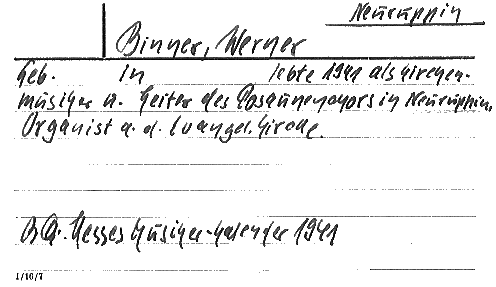 Neuruppin
Binner, Werner
Geb. in lebte 1941 als Kirchen-
musiker u. Leiter des Posaunenchors in Neuruppin,
Organist a. d. Evangel. Kirche.
BQ. Hesses Musiker-Kalender 1941
1/16/7